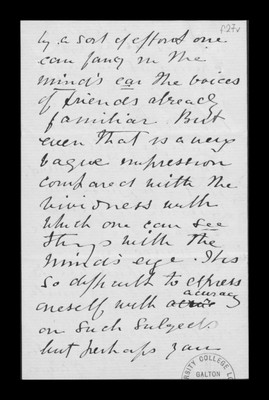 f27v
by a sort of effort one
can fancy in the
mind's ear the voices
of friends already
familiar. But
even that is a very
vague impression
compared with the
vividness with
which one can see
things with the
mind's eye. It is
so difficult to express
accuracy
oneself with
on such subjects
but perhaps I am
RSITY COLLEGE L
GALTON